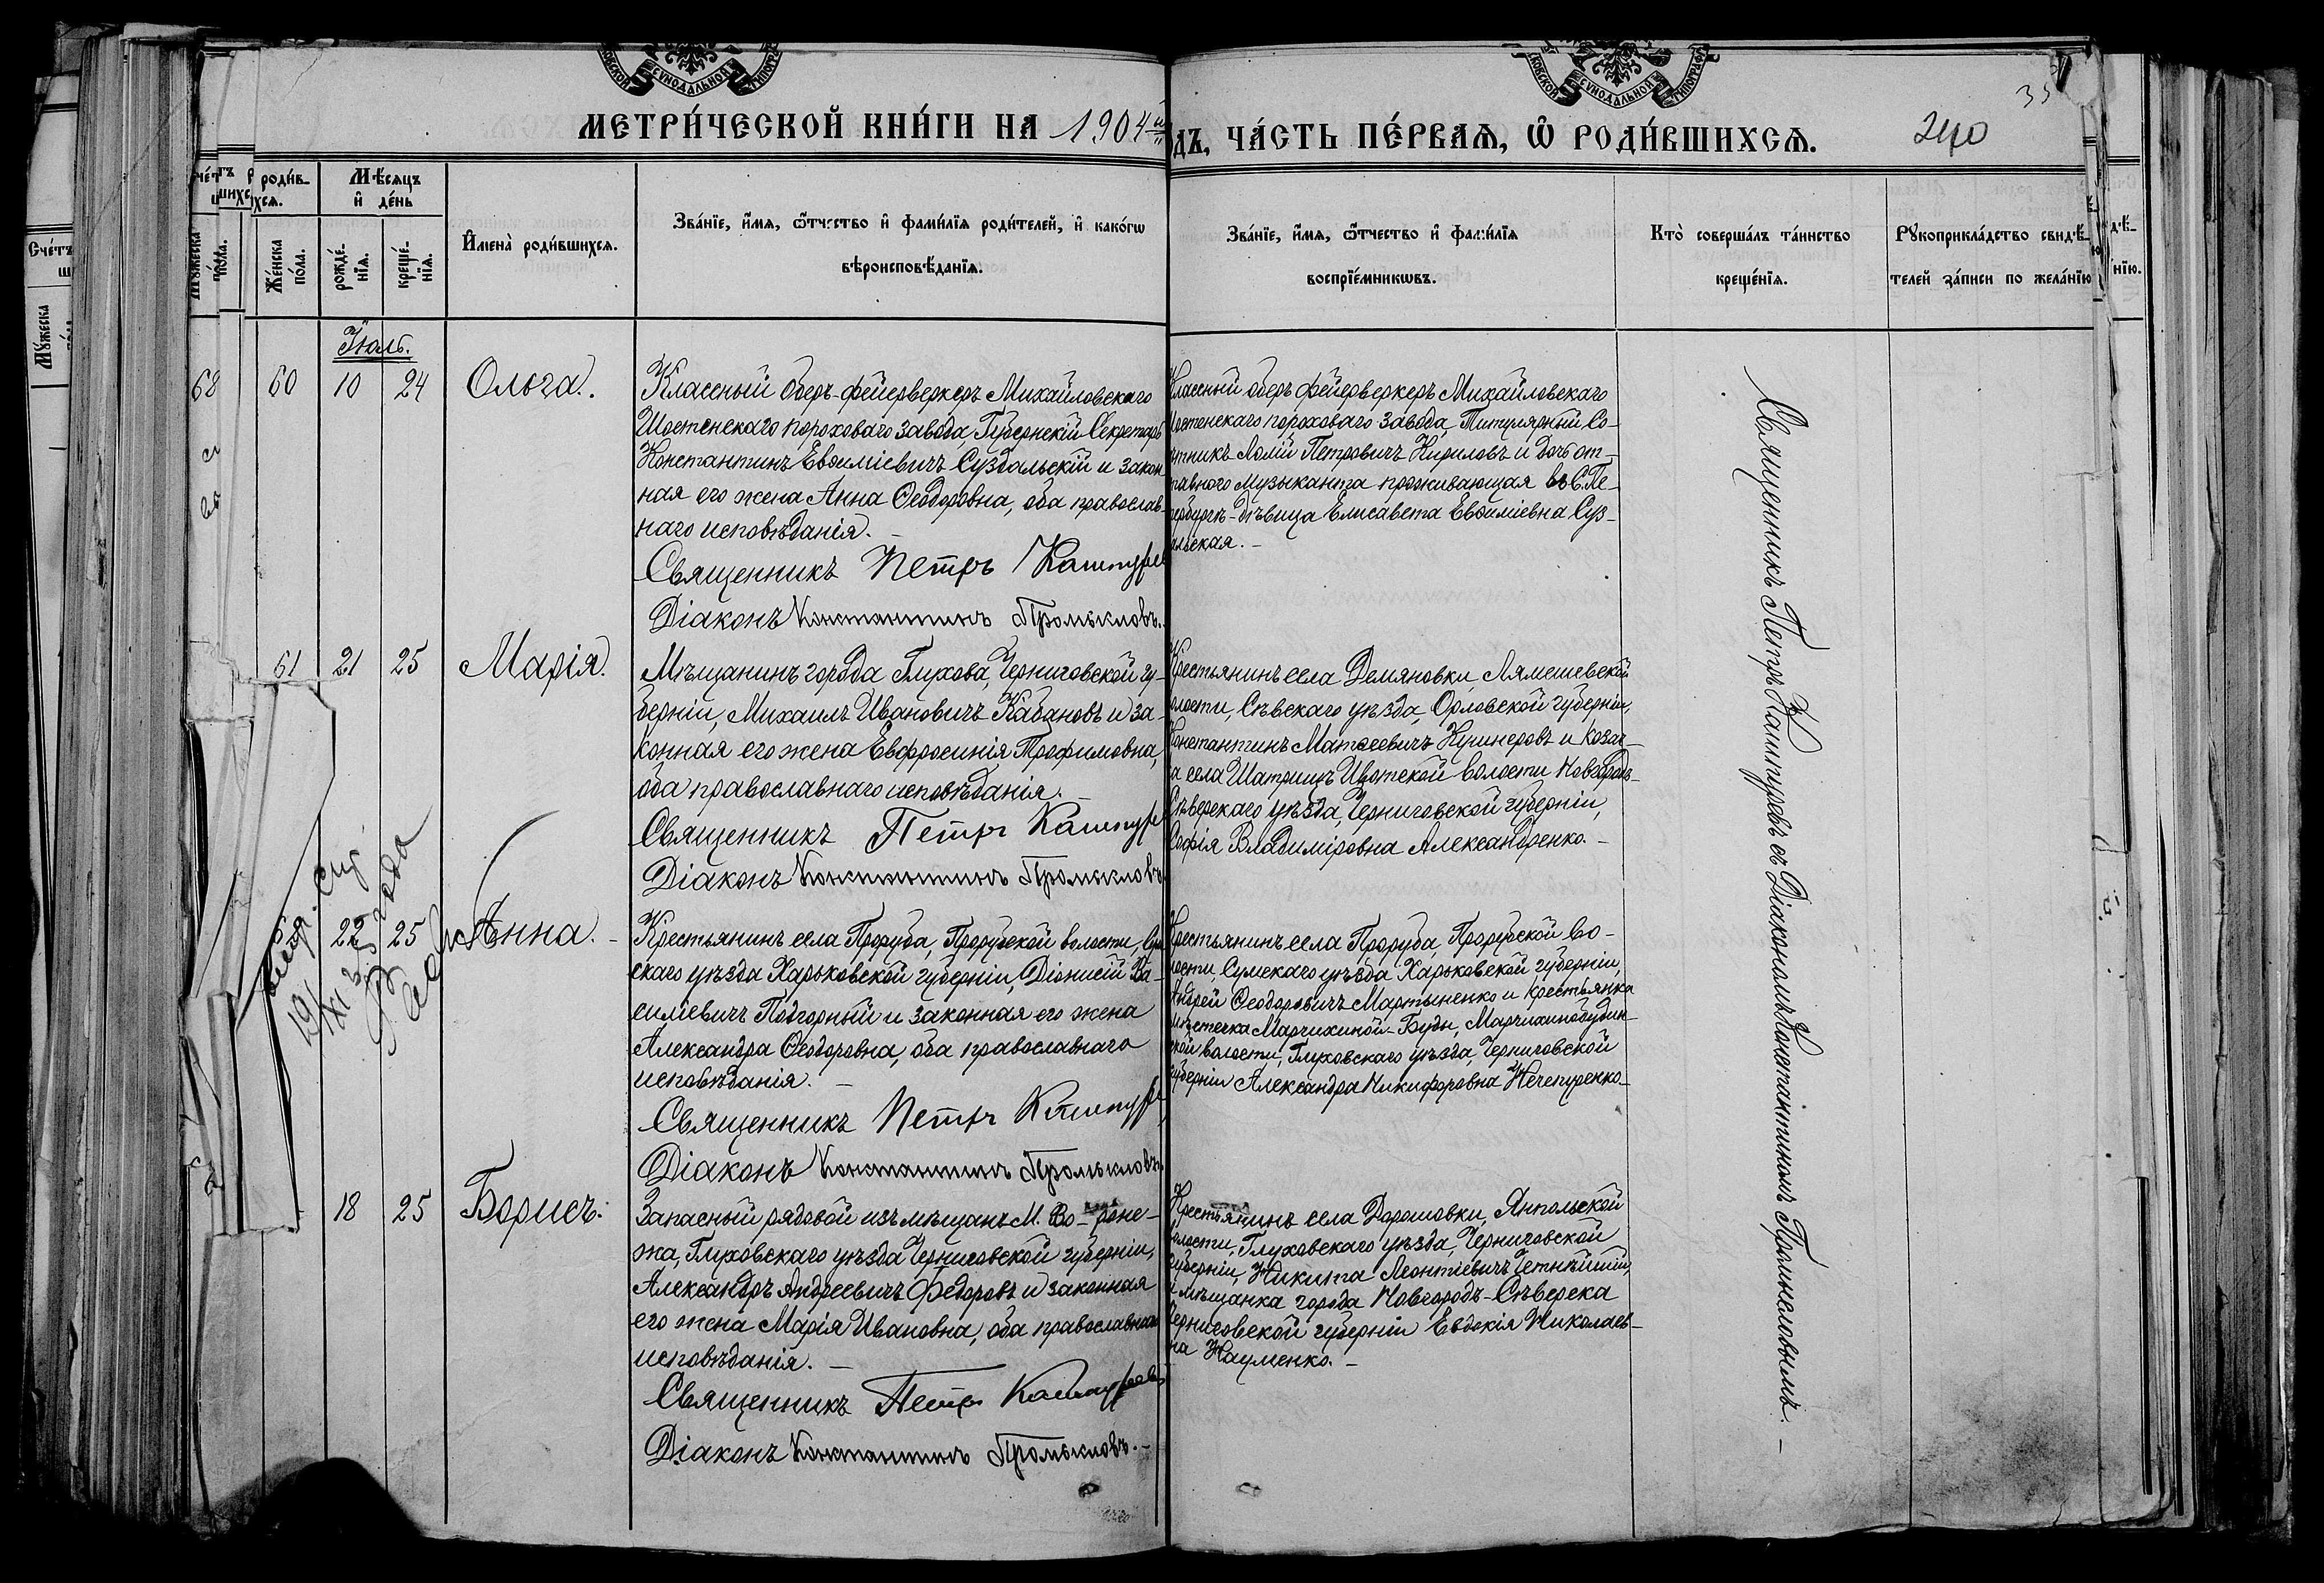 МЕТРИ́ЧЕСКОЙ КНИ́ГИ НА 1904 й
ДЪ, ЧА́СТЬ ПЕ́РВАѦ, Ѡ РОДИ́ВШИХСѦ.
240
СѴНОДАЛЬНОЙ
СѴНОДАЛЬНОЙ
Счетъ
Мꙋжеска
Мꙋжеска пола.
роди́в-
хсѧ.
Же́нска по́ла.
Мѣ́сѧцъ и҆ де́нь
рожде́нїѧ.
креще́нїѧ.
И҆мена̀ роди́вшихсѧ.
Зва́нїе, и҆́мѧ, ѻ҆́тчество и҆ фами́лїѧ роди́телей, и҆ како́гѡ
вѣроисповѣ́данїѧ.
Зва́нїе, и҆́мѧ, ѻ҆́тчество и҆ фами́лїѧ
воспрїе́мникѡвъ.
Кто̀ соверша́лъ та́инство
креще́нїѧ.
Рꙋкоприкла́дство свидѣ́-
телей за́писи по жела́нїю
Іюль.
68 60 10 24 Ольга.
Классный Оберъ-фейерверкеръ Михайловскаго
Шостенскаго пороховаго завода, Губернскій Секретарь
Константинъ Евѳиміевичъ Суздальскій и закон
ная его жена Анна Ѳеодоровна, оба православ-
наго исповѣданія.
Священникъ Петръ
Діаконъ Константинъ Промысловъ.
Классный оберъ фейерверкеръ Михайловскаго
Шостенскаго пороховаго завода, Титулярный Со-
вѣтникъ Петровичъ Кириловъ и дочь от-
ставного музыканта проживающая въ С.Пе-
тербургѣ - дѣвица Елисавета Евѳиміевна Суз-
дальская. -
61 21 25 Марія.
Мѣщанинъ города Глухова, Черниговской гу-
берніи, Михаилъ Ивановичъ Кабановъ и за-
конная его жена Евфросинія Трофимовна,
оба православнаго исповѣданія. -
Священникъ Петръ
Діаконъ Константинъ Промысловъ
Крестьянинъ села Демяновки, Лямешевской
волости, Сѣвскаго уѣзда, Орловской губерніи,
Константинъ Матѳеевичъ и козач-
ка села Шатрищъ волости Новгородъ-
Сѣверскаго уѣзда, Черниговской губерніи,
Софія Владиміровна Александренко. -
22 25 Анна. -
Крестьянинъ села Проруба, Прорубской волости, Сум
скаго уѣзда Харьковской губерніи, Діонисій Ва-
силіевичъ Подгорный и законная его жена
Александра Ѳеодоровна, оба православнаго
исповѣданія. -
Священникъ Петръ
Діаконъ Константинъ Промысловъ
Крестьянинъ села Проруба, Прорубской во-
лости, Сумскаго уѣзда Харьковской губерніи,
Андрей Ѳеодоровичъ Мартыненко и крестьянка
мѣстечка Марчихиной-Буды, Марчихинобудин-
ской волости, Глуховскаго уѣзда, Черниговской
губерніи Александра Никифоровна Нечепуренко-
18 25 Борисъ.
Запасный рядовой изъ мѣщанъ м. Во-роне-
жа, Глуховскаго уѣзда Черниговской губерніи,
Александръ Андреевичъ Федоровъ и законная
его жена Марія Ивановна, оба православнаго
исповѣданія. -
Священникъ Петръ
Діаконъ Константинъ Промысловъ. -
Крестьянинъ села Дорошовки, Янпольской
волости, Глуховскаго уѣзда, Черниговской
губерніи, Никита Леонтіевичъ
и мѣщанка города Новгородъ-Сѣверска
Черниговской губерніи Евдокія Николаев-
на Науменко. -
Священникъ Петръ Каштуровъ съ Діакономъ Константиномъ Промысловымъ. -